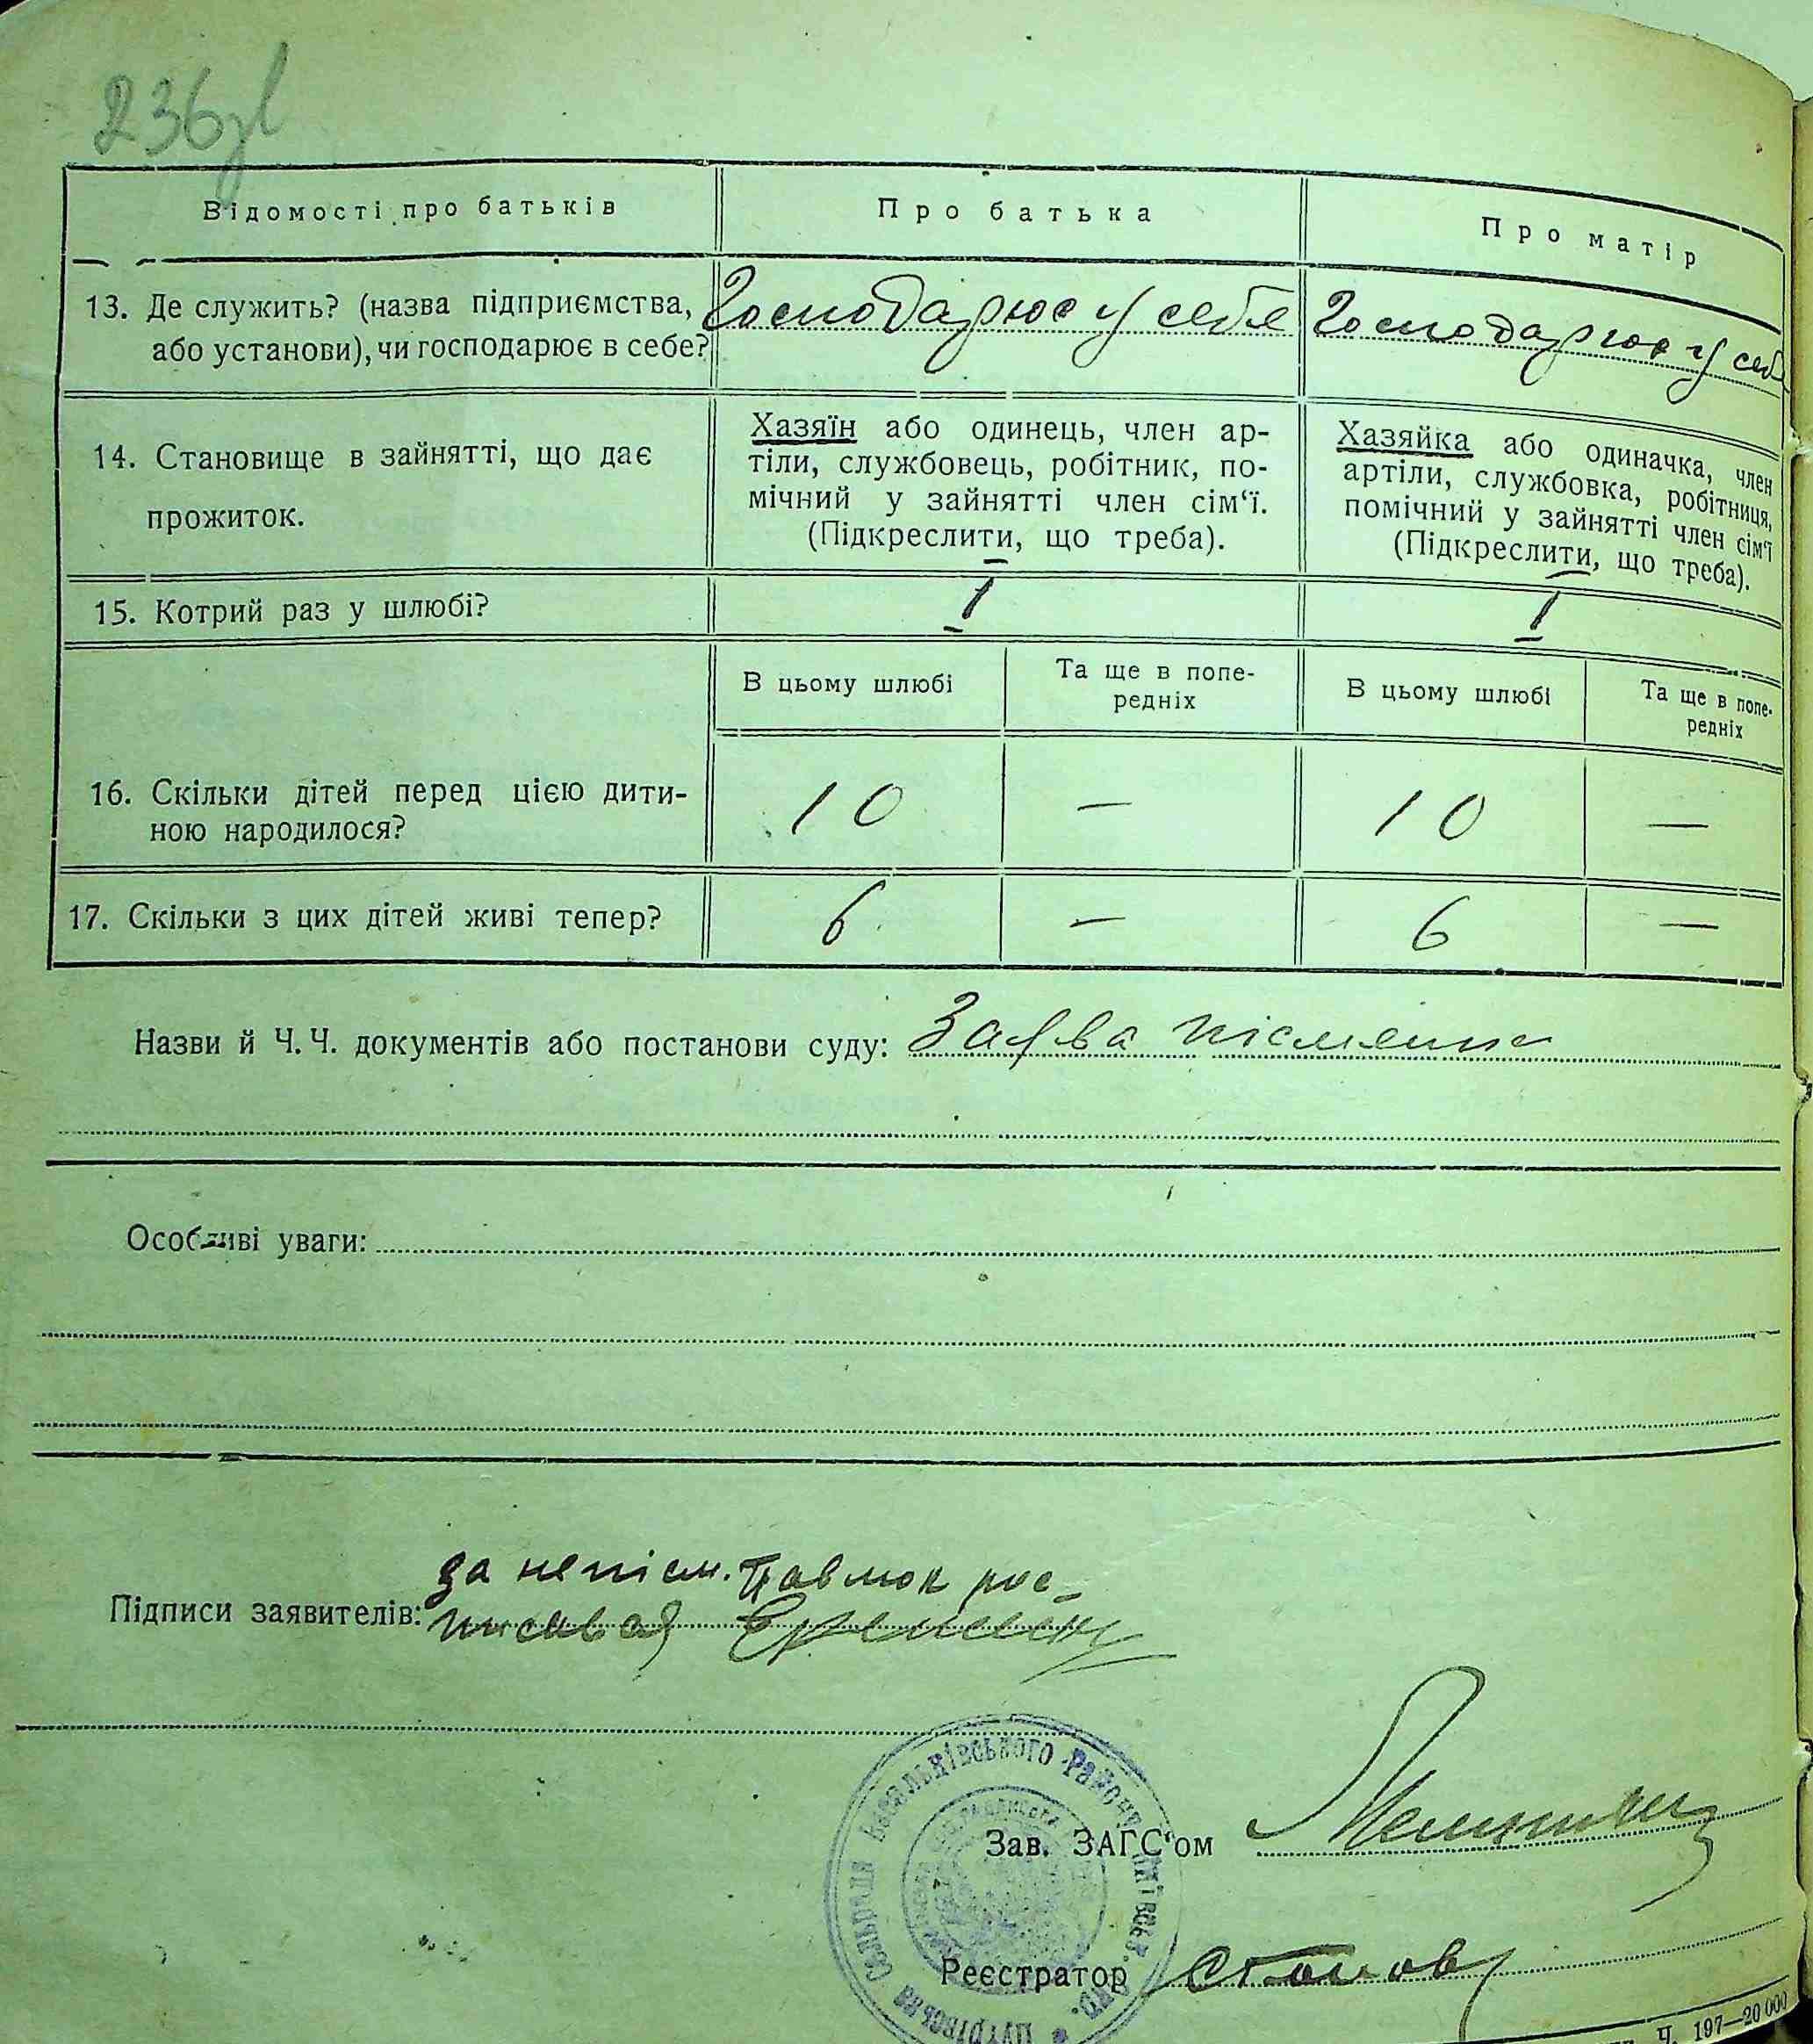 236зв
Відомості про батьків
Про батька
Про матір
13. Де служить? (назва підприємства,
або установи), чи господарює в себе?
Господарює у себе
Господарює у себе
14. Становище в зайнятті, що дає
прожиток.
Хазяїн або одинець, член ар-
тіли, службовець, робітник, по-
мічний у зайнятті член сім‘ї.
(Підкреслити, що треба).
Хазяйка або одиначка, член
артіли, службовка, робітниця,
помічний у зайнятті член сім‘ї
(Підкреслити, що треба).
15. Котрий раз у шлюбі?
I
I
В цьому шлюбі
Та ще в попе-
редніх
В цьому шлюбі
Та ще в попе-
редніх
16. Скільки дітей перед цією дити-
ною народилося?
10 — 10 —
17. Скільки з цих дітей живі тепер?
6 — 6 —
Назви й Ч. Ч. документів або постанови суду: Заява пісменна
Особливі уваги:
за непісм. Павлюк рос-
Підписи заявителів: писавая
Васильківського Району
Сельрада
Зав. ЗАГС‘ом
Реєстратор
Ч. 197—20 000